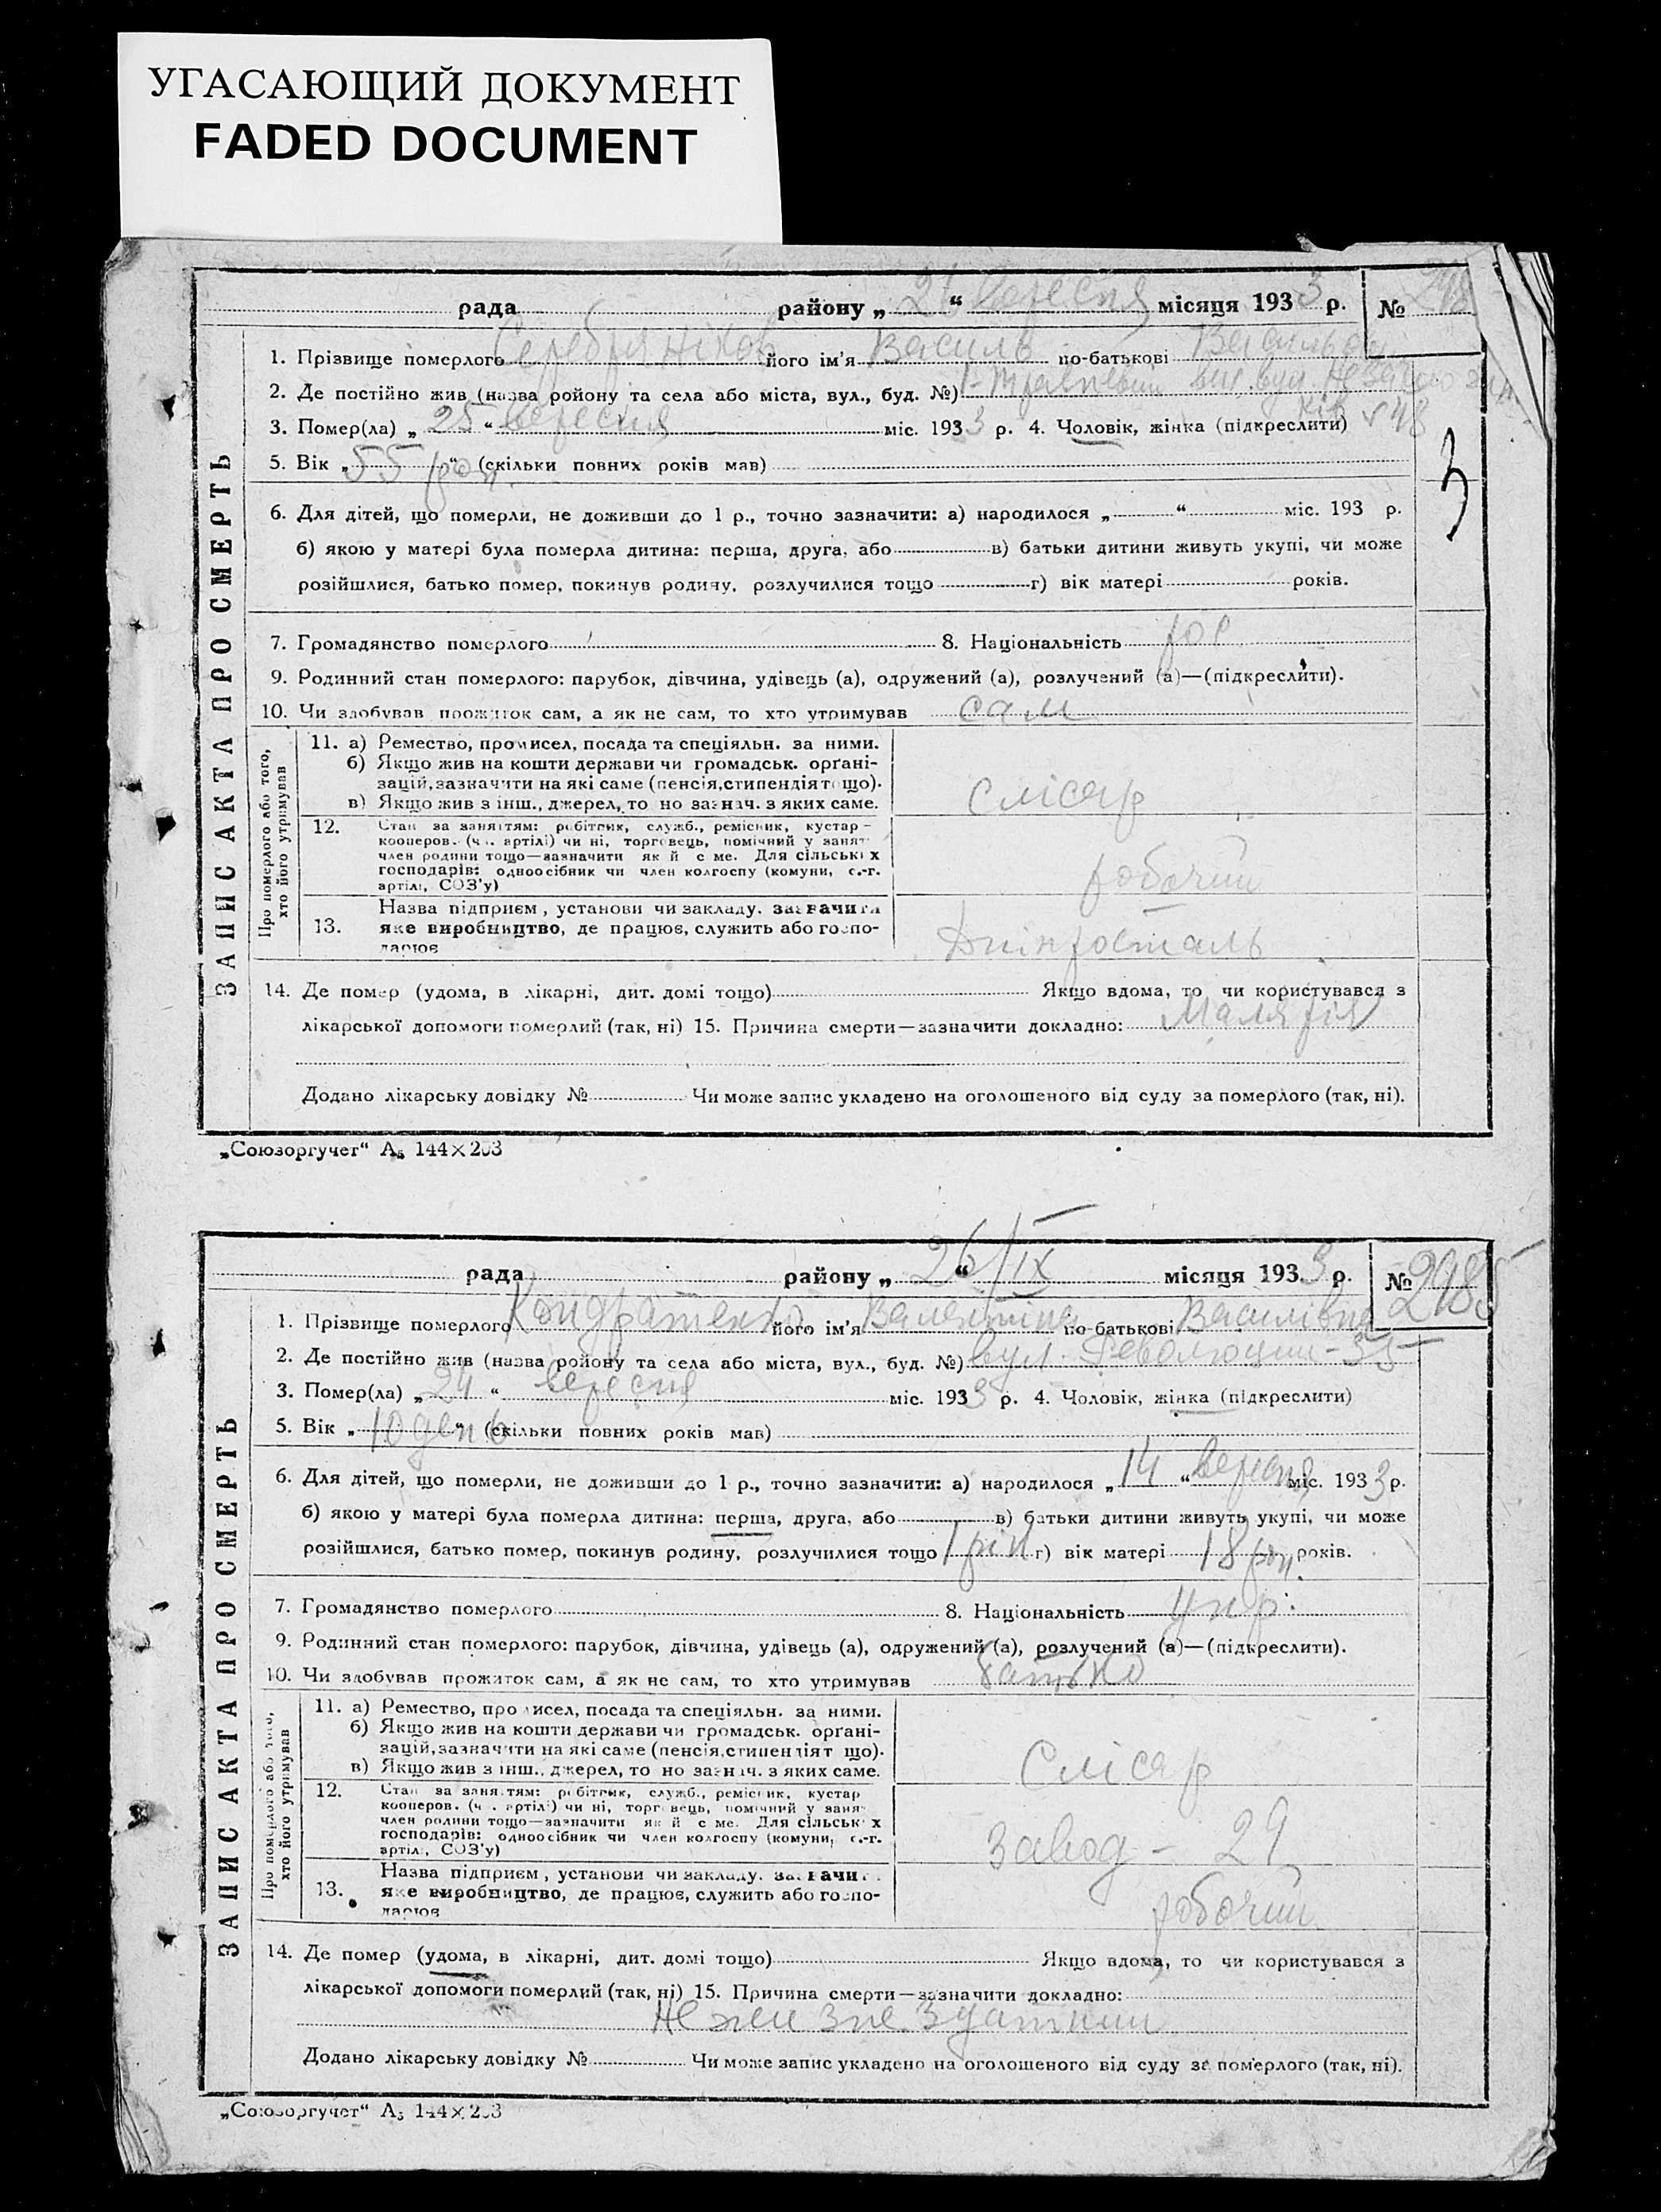 УГАСАЮЩИЙ ДОКУМЕНТ
FADED DOCUMENT
рада району „ “ вересня місяця 1933 р. №
1. Прізвище померлого Серебряніков його ім'я Василь по-батькові
2. Де постійно жив (назва ройону та села або міста, вул., буд. №) вул.
3. Помер(ла) „ 25 “ вересня міс. 1933 р. 4. Чоловік, жінка (підкреслити) 48
5. Вік „ 55 рок. “ (скільки повних років мав)
3
6. Для дітей, що померли, не доживши до 1 р., точно зазначити: а) народилося „ “ міс. 193 р.
б) якою у матері була померла дитина: перша, друга, або в) батьки дитини живуть укупі, чи може
розійшлися, батько помер, покинув родину, розлучилися тощо г) вік матері років.
7. Громадянство померлого 8. Національність рос
9. Родинний стан померлого: парубок, дівчина, удівець (а), одружений (а), розлучений (а)—(підкреслити).
10. Чи здобував прожиток сам, а як не сам, то хто утримував сам
ЗАПИС АКТА ПРО СМЕРТЬ
Про померлого або того,
хто його утримував
11. а) Ремество, промисел, посада та спеціяльн. за ними.
б) Якщо жив на кошти держави чи громадськ. орґані-
зацій, зазначити на які саме (пенсія, стипендія тощо).
в) Якщо жив з інш., джерел, то но зазнач. з яких саме.
Слісар
12. Стан за заняттям: робітник, служб., ремісник, кустар-
кооперов. (чл. артілі) чи ні, торговець, помічний у занят
член родини тощо—зазначити як й с ме. Для сільськ х
господарів: одноосібник чи член колгоспу (комуни, с.-г.
артілі, СОЗ'у)
робочий
Назва підприєм, установи чи закладу. зазначити
13. яке виробництво, де працює, служить або госпо-
дарює
Дніпросталь
14. Де помер (удома, в лікарні, дит. домі тощо) Якщо вдома, то чи користувався з
лікарської допомоги померлий (так, ні) 15. Причина смерти—зазначити докладно: Малярія
Додано лікарську довідку № Чи може запис укладено на оголошеного від суду за померлого (так, ні).
„Союзоргучет“ А5 144×203
рада району „ 26/IX “ місяця 1933 р. № 2985
1. Прізвище померлого Кондратенко його ім'я Валентіна по-батькові Василівна
2. Де постійно жив (назва ройону та села або міста, вул., буд. №) вул. Революции-35
3. Помер(ла) „ 24 “ вересня міс. 1933 р. 4. Чоловік, жінка (підкреслити)
5. Вік „ 10 ден “ (скільки повних років мав)
6. Для дітей, що померли, не доживши до 1 р., точно зазначити: а) народилося „ 14 “ вересня міс. 1933 р.
б) якою у матері була померла дитина: перша, друга, або в) батьки дитини живуть укупі, чи може
розійшлися, батько помер, покинув родину, розлучилися тощо 1 рік г) вік матері 18 рок. років.
7. Громадянство померлого 8. Національність укр.
9. Родинний стан померлого: парубок, дівчина, удівець (а), одружений (а), розлучений (а)—(підкреслити).
10. Чи здобував прожиток сам, а як не сам, то хто утримував батько
ЗАПИС АКТА ПРО СМЕРТЬ
Про померлого або того,
хто його утримував
11. а) Ремество, промисел, посада та спеціяльн. за ними.
б) Якщо жив на кошти держави чи громадськ. орґані-
зацій, зазначити на які саме (пенсія, стипендія т що).
в) Якщо жив з інш., джерел, то но зазнач. з яких саме.
Слісар
12. Стан за заняттям: робітник, служб., ремісник, кустар
кооперов. (чл. артілі) чи ні, торговець, помічний у занят
член родини тощо—зазначити як й с ме. Для сільськ х
господарів: одноосібник чи член колгоспу (комуни, с.-г.
артілі, СОЗ'у)
Завод - 29
Назва підприєм, установи чи закладу. зазначити
13. яке виробництво, де працює, служить або госпо-
дарює
робочий
14. Де помер (удома, в лікарні, дит. домі тощо) Якщо вдома, то чи користувався з
лікарської допомоги померлий (так, ні) 15. Причина смерти—зазначити докладно:
Не жизне здатним
Додано лікарську довідку № Чи може запис укладено на оголошеного від суду за померлого (так, ні).
„Союзоргучет“ А5 144×203